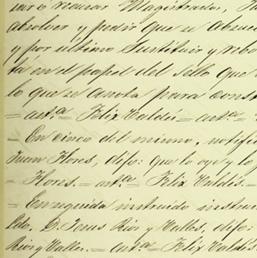 sar ó recusar Magistrados,
absolver y pedir que se absuel
y por ultimo Sustituir y rebo
tá en el papel del sello que
lo que se anota para const
= ant.ª = Felix Valdés = ant.ª =
= En cinco del mismo, notifi
Juan Flores, dijo: que lo oye y lo
= Flores. = ant.ª = Felix Valdés. =
= Enseguida instruido
Ldo. D. Jesus Rios y Valles, dijo:
Rios y Valles. = ant.ª = Felix Valdés